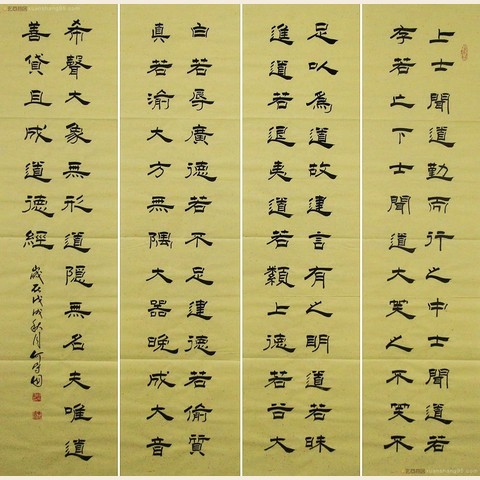 上士聞道勤而行之中士聞道若
存若亡下士聞道大笑之不笑不
足以為道故建言有之明道若昧
進道若退夷道若纇上德若谷大
白若辱廣德若不足建德若偷質
真若渝大方無隅大器晚成大音
希聲大象無形道隱無名夫唯道
善貸且成道德經
歲在戊戌秋月